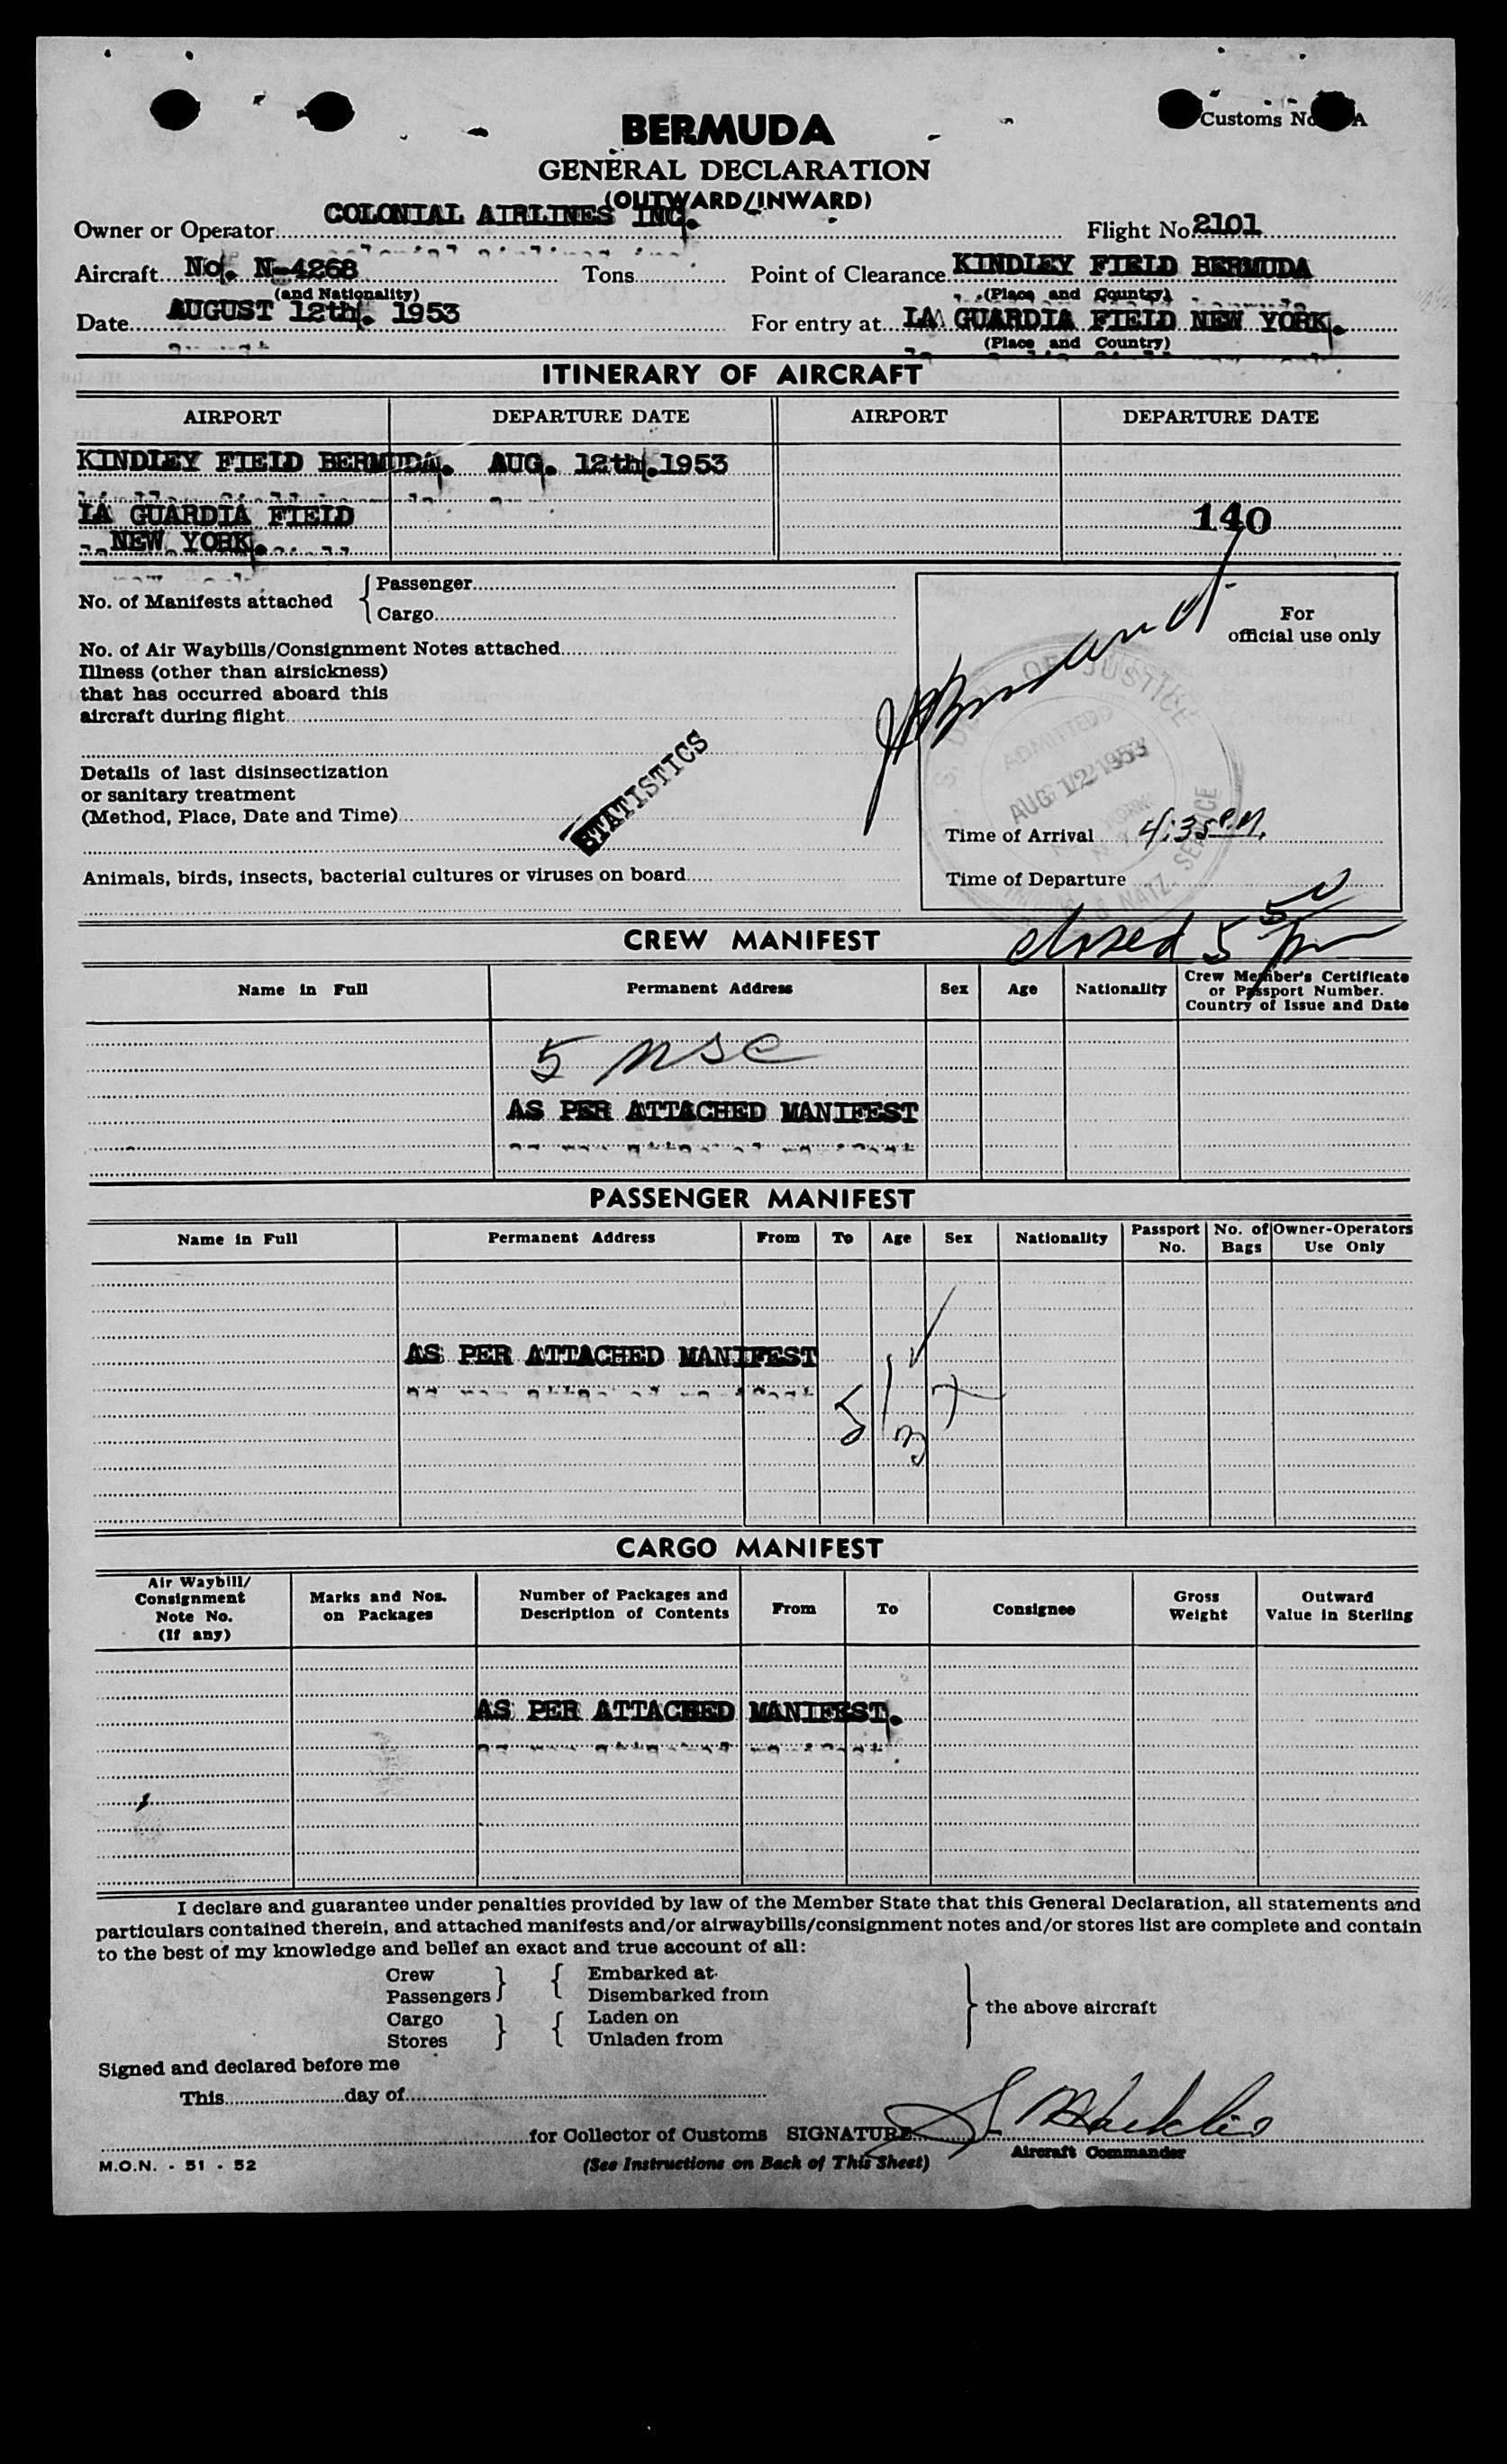 Customs No. A
BERMUDA
GENERAL DECLARATION
(OUTWARD/INWARD)
Owner or Operator COLONIAL AIRLINES INC. Flight No. 2101
Aircraft No. N-4268 Tons Point of Clearance KINDLEY FIELD BERMUDA
(and Nationality) (Place and Country)
Date AUGUST 12th. 1953 For entry at LA GUARDIA FIELD NEW YORK.
(Place and Country)
ITINERARY OF AIRCRAFT
AIRPORT DEPARTURE DATE AIRPORT DEPARTURE DATE
KINDLEY FIELD BERMUDA. AUG. 12th.1953
LA GUARDIA FIELD 140
NEW YORK.
No. of Manifests attached { Passenger
Cargo
For
official use only
No. of Air Waybills/Consignment Notes attached
Illness (other than airsickness)
that has occurred aboard this
aircraft during flight
U. S. DEPT. OF JUSTICE
ADMITTED
AUG 12 1953
NEW YORK
N. Y.
IMMIG. & NATZ. SERVICE
STATISTICS
Details of last disinsectization
or sanitary treatment
(Method, Place, Date and Time)
Time of Arrival 4:35 P.M.
Animals, birds, insects, bacterial cultures or viruses on board
Time of Departure
closed 5 50 pm
CREW MANIFEST
Name in Full Permanent Address Sex Age Nationality Crew Member's Certificate or Passport Number. Country of Issue and Date
5 nsc
AS PER ATTACHED MANIFEST
PASSENGER MANIFEST
Name in Full Permanent Address From To Age Sex Nationality Passport No. No. of Bags Owner-Operators Use Only
AS PER ATTACHED MANIFEST
CARGO MANIFEST
Air Waybill/ Consignment Note No. (If any) Marks and Nos. on Packages Number of Packages and Description of Contents From To Consignee Gross Weight Outward Value in Sterling
AS PER ATTACHED MANIFEST.
I declare and guarantee under penalties provided by law of the Member State that this General Declaration, all statements and
particulars contained therein, and attached manifests and/or airwaybills/consignment notes and/or stores list are complete and contain
to the best of my knowledge and belief an exact and true account of all:
Crew } { Embarked at
Passengers Disembarked from
} the above aircraft
Cargo } { Laden on
Stores Unladen from
Signed and declared before me
This day of
for Collector of Customs SIGNATURE
Aircraft Commander
M.O.N. - 51 - 52 (See Instructions on Back of This Sheet)